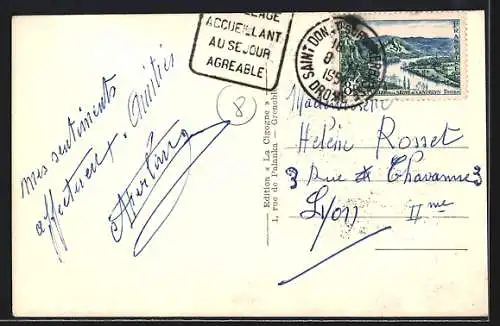 ACCUEILLANT
AU SEJOUR
AGREABLE
SAINT DON
DROME
8
mes sentiments
affectueux
Edition « La Cigogne »
1, rue de Palanka - Grenoble
Mademoiselle
Helène Rosset
3 Rue de Chavannes
Lyon IIme